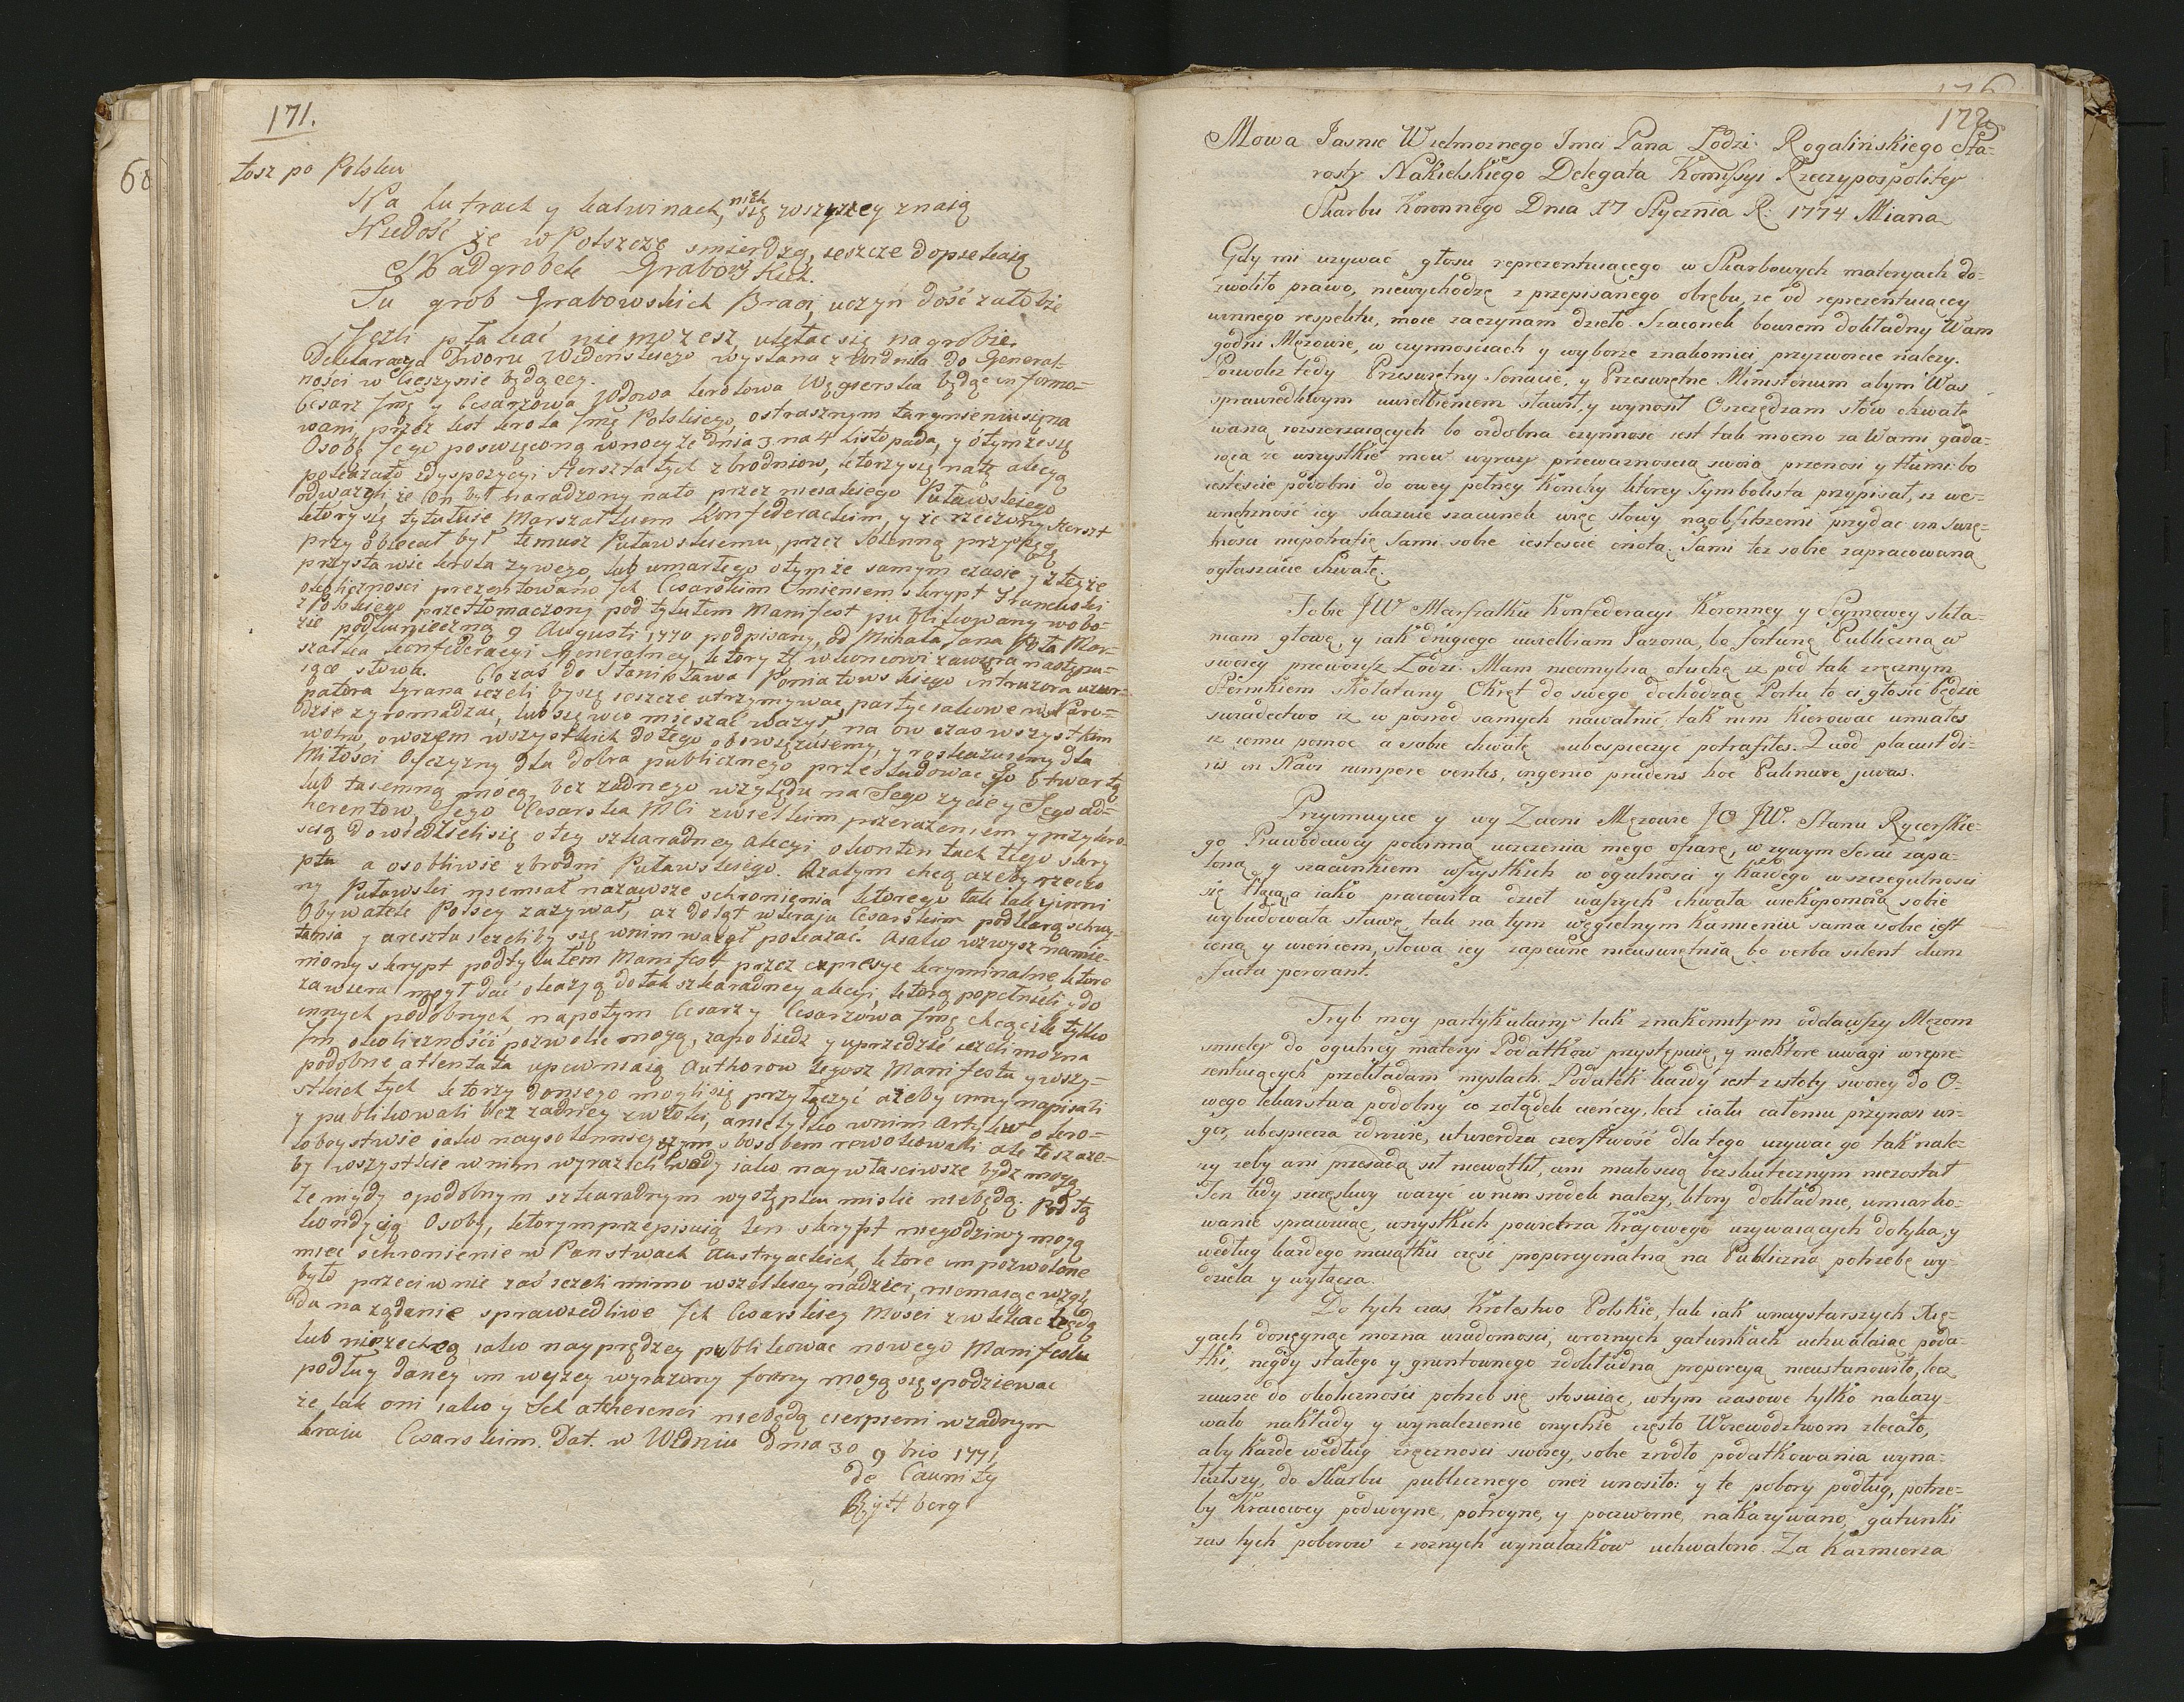 171.
tosz po Polsku
Na Lutrach y Kalwinach, niech się wszyscy znaią
Nie dość że w Polszcze smierdzą, ieszcze dopiekaią
Nadgrobek Grabowskich.
Tu grob Grabowskich Braci, uczyń dość załobie
Jeżli płakać nie możesz, ulętac się na grobie.
Deklaracya Dworu Widenskiego wysłana z Widnia do General-
ności w Cieszynie będącey.
Cesarz Jmę y Cesarzowa Wdowa krolowa Węgierska będąc informo-
wani, przez list krola Jmę Polskiego, o strasznym targnieniu się na
Osobę Jego poswięconą w nocy ze dnia 3 na 4 Listopada, y o tym ze się
pokazało z dyspozycyi Herszta tych zbrodniow, ktorzy się na tę akcyą
odważyli że on był naradzony na to przez niejakiego Puławskiego
ktory się tytułuie Marszałkiem Konfederackim, y że rzeczony Herszt
przyobiecał był temusz Puławskiemu, przez solenną przysięgę
przystawić krola zywego, lub umarłego o tym że samym czasie y z teyże
okoliczności prezentowano Ich Cesarskim Imieniem skrypt Francuski
z Polskiego przetłomaczony pod tytułem Manifest publikowany w obo-
zie pod Koniecznę 9 Augusti 1770 podpisany, od Michała Jana Paca Mar-
szałka konfederacyi Generalney, ktory ty w koncowi zawiera następu-
iące słowa. Co zaś do Stanisława Poniatowskiego intruzora uzur-
patora tyrana ieżeli by się ieszcze utrzymywać, partye iakowe w Naro-
dzie zgromadzac, lub się w co mieszać ważył, na ow czas wszystkim
wolno, owszem wszystkich do tego obowięzuiemy, y roskazuiemy dla
Miłości Oyczyzny dla dobra publicznego prześladować go otwartą
lub taiemną mocą, bez żadnego względu na Jego życie y Jego ad-
herentow, Jego Cesarska Mci z wielkim przerażeniem y przykro-
scią dowiedzieli się o tey szkaradney akcyi, o kontentach tego skry-
ptu a osobliwie zbrodni Puławskiego. Azatym chcą ażeby rzeczo-
ny Puławski niemiał nazawsze schronienia ktorego tak iak y inni
Obywatele Polscy zażywał, aż dotąt w kraiu Cesarskim pod karą schwy-
tania y aresztu ieżeliby się w nim ważył pokazać. A iako wzwysz namie-
niony skrypt pod tytułem Manifest przez expresye kryminalne ktore
zawiera mogł dać okazyą do tak szkaradney akcyi, ktorą popełnieli y do
innych podobnych napotym Cesarz y Cesarzowa Jmę chcąc ile tylko
Im okoliczności pozwolić mogą, zapobiedz y uprzedzić ieżeli można
podobne attentata upewniaią Authorow tegosz Manifestu y wszy-
stkich tych ktorzy do niego mogli się przyłączyć ażeby inny napisali
y publikowali bez żadney zwłoki, a nietylko w nim Artykuł o kro-
loboystwie iako naysolenniey szym sposobem rewokowali ale też aże-
by wszystkie w nim wyrazili dowody iako naywłasciwsze bydz mogą
że nigdy o podobnym szkaradnym występku mislić niebędą. Pod tą
kondycią Osoby, ktorym przepisuią ten skrypt niegodziwy mogą
mieć schronienie w Panstwach Austryackich, ktore im pozwolone
było przeciwnie zaś ieżeli mimo wszelkiey nadziei, niemaiąc wzglę-
du na żądanie sprawiedliwe Ich Cesarskiey Mosci zwlekać będą
lub niezechcą iako nayprędzey publikować nowego Manifestu
podług daney im wyżey wyrażoney formy mogą się spodziewać
że tak oni iako y Ich adherenci niebędą cierpieni w żadnym
kraiu Cesarskim. Dat. w Widniu Dnia 30 9bris 1771
de Caunitz
Rytberg
172
Mowa Jasnie Wielmoznego Jmci Pana Łodzi Rogalińskiego Sta-
rosty Nakielskiego Delegata Komissyi Rzeczypospolitey
Skarbu Koronnego Dnia 17 Stycznia R: 1774 Miana
Gdy mi używać głosu reprezentuiącego w Skarbowych materyach do-
zwoliło prawo, niewychodzę z przepisanego obrębu, że od reprezentuiącey
winnego respektu, moie zaczynam dzieło. Szacunek bowiem dokładny Wam
godni Mężowie, w czynnosciach y wyborze znakomici, przyzwoicie należy.
Pozwolcz tedy Przeswietny Senacie, y Przeswietne Ministerium abym Was
sprawiedliwym uwielbieniem sławił, y wynosił Oszczędzam słów chwałę
waszą rozszerzaiących bo ozdobna czynność iest tak mocno za Wami gada-
iąca że wszystkie mow wyrazy przewaznoscią swoią przenosi y tłumi: bo
iesteście podobni do owey pełney Konchy ktorey Symbolista przypisał, iż we-
wnętrzność iey skazuie szacunek więc słowy nayobfitszemi przydać im swie-
tnosci niepotrafię Sami sobie iesteście cnotą. Sami też sobie zapracowaną
ogłaszacie Chwałę.
Tobie JW Marszałku Konfederacyi Koronney y Seymowey skła-
niam głowę, y iak drugiego uwielbiam Jazona, bo fortunę Publiczną w
swoiey przewozisz Łodzi. Mam nieomylną otuchę iż pod tak zręcznym
Sternikiem skołatany Okręt do swego dochodząc Portu to ci głosić będzie
swiadectwo iż w posrod samych nawałnić tak nim kierować umiałes
iż iemu pomoc a sobie chwałę ubespieczyć potrafiłes. Quod placuit di-
is in Navi rumpere ventis, ingenio prudens hoc Palinure juvas.
Przyimuycie y wy Zacni Mężowie JO JW. Stanu Rycerskie-
go Prawodawcy powinną uczczenia mego ofiarę, w zywym Sercu zapa-
loną y szacunkiem wszystkich w ogulności y każdego w szczegulnosci
się tlącą a iako pracowita dzieł waszych chwała wiekopomną sobie
wybudowała sławę, tak na tym węgielnym kamieniu sama sobie iest
ceną y wieńcem, słowa iey zapewne nieuswietnią, bo verba silent dum
facta perorant.
Tryb moy partykularny tak znakomitym oddawszy Mężom
smieley do ogulney materyi Podatkow przystępuię, y niektore uwagi w repre-
zentuiących przekładam myslach. Podatek każdy iest z istoty swoiey do O-
wego lekarstwa podobny co żołądek cieńczy, lecz ciału całemu przynosi wi-
gor, ubespiecza zdrowie, utwierdza czerstwość dla tego używać go tak nale-
ży żeby ani przesadą sił niewątlił, ani małoscią bezskutecznym niezostał
Ten tedy szczęsliwy ważyć w nim srodek należy, ktory dokładnie, umiarko-
wanie sprawuiąc, wszystkich powietrza Kraiowego używaiących dotyka, y
według każdego maiątku część proporcyonalną na Publiczną potrzebę wy-
dziela y wyłącza.
Do tych czas Krolestwo Polskie, tak iak w naystarszych Xię-
gach dosięgnąć można wiadomosci, w roznych gatunkach uchwalaiąc poda-
tki, nigdy stałego y gruntownego z dokładną proporcyą nieustanowiło, lecz
zawsze do okoliczności potrzeb się stosuiąc, w tym czasowe tylko nakazy-
wało nakłady y wynalezienie onychże często Woiewodztwom zlecało,
aby każde według zręcznosci swoiey, sobie zrodło podatkowania wyna-
laższy, do Skarbu publicznego oneż wnosiło: y te pobory podług, potrze-
by Kraiowey podwoyne, potroyne, y poczworne, nakazywano; gatunki
zas tych poborow z roznych wynalazkow uchwalono. Za Kazimierza